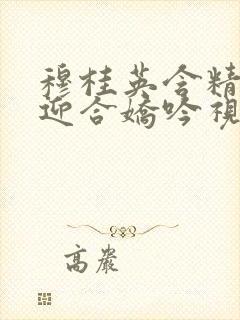 穆桂英含精
迎合嬌吟視
高嚴